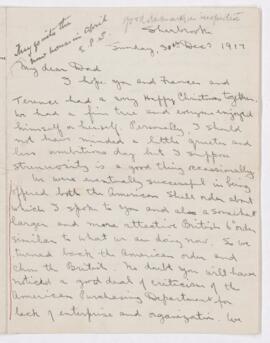 They go into the
new house in April
E.P.S.
Sherbrooke
Sunday, 30th Dec. 1917
My dear Dad
I hope you and Frances and
Terence had a very Happy Christmas together.
We had a fine tree and everyone enjoyed
himself or herself. Personally, I should
not have minded a little quieter and
less strenuous day but I suppose
strenuosity is a good thing occasionally.
We were eventually successful in being
offered both the American Shell order about
which I spoke to you and also a somewhat
larger and more attractive British order
similar to what we are doing now. So we
turned back the American order and
chose the British. No doubt you will have
noticed a good deal of criticism of the
American Purchasing Department for
lack of enterprise and organization. We